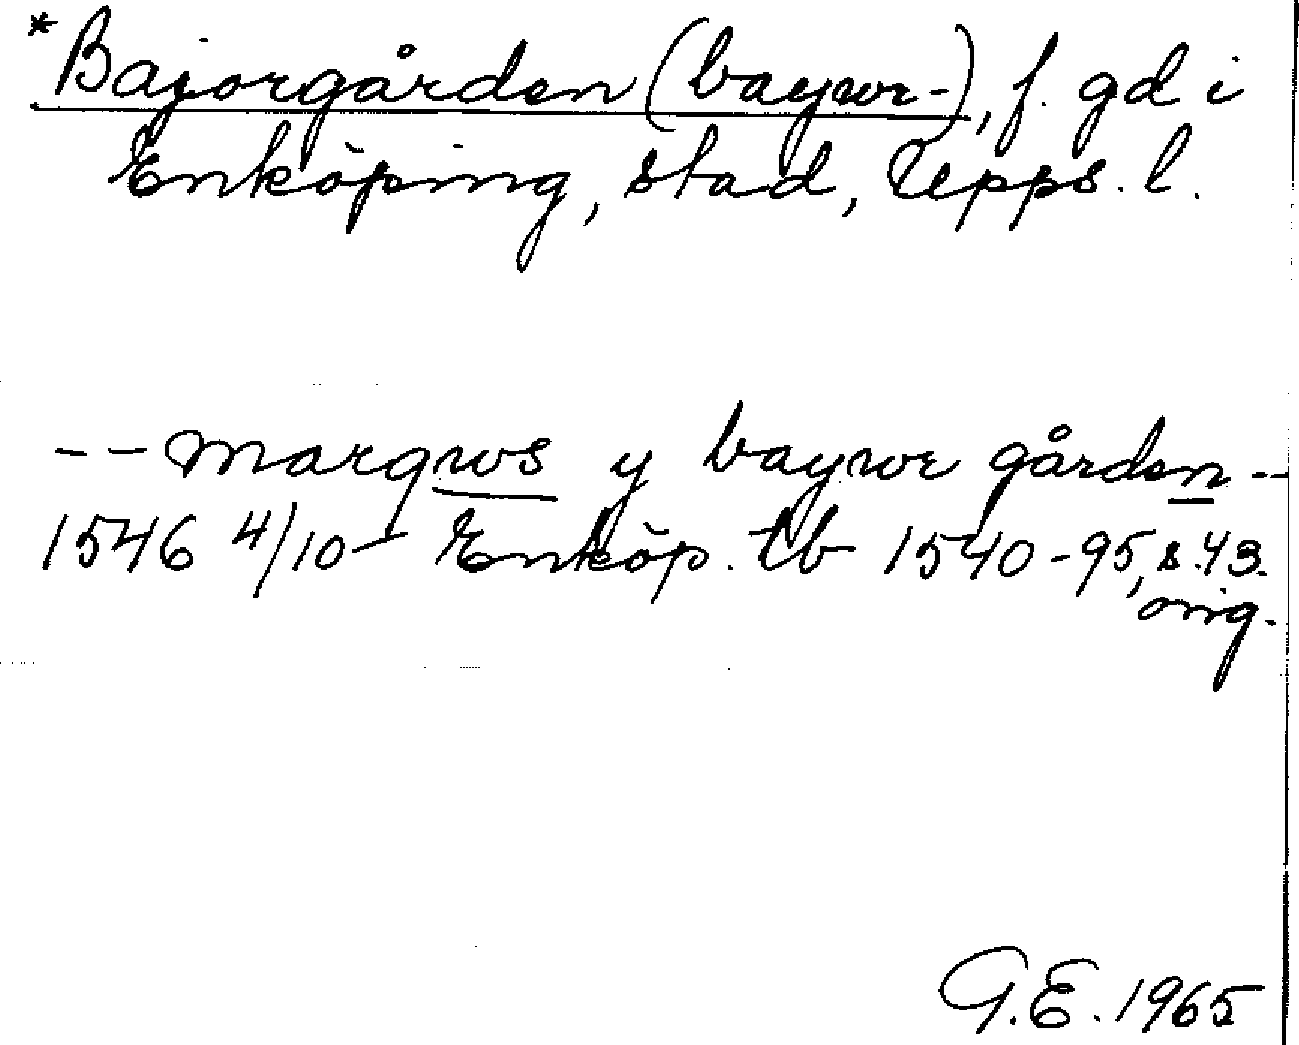 *Bajorgården (baywr-), f. gd i
Enköping, stad, Upps. l.
-- marqws y baywr gården --
1546 4/10 Enköp. tb 1540-95, s. 43.
orig.
G.E. 1965